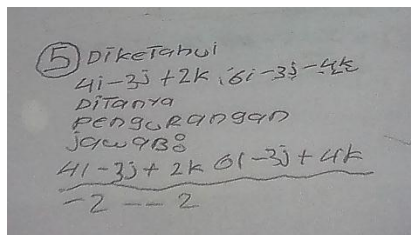 5 Diketahui
4i-3j+2k, 6i-3j-4k
Ditanya
Pengurangan
Jawab:
4i-3j+2k 6i-3j+4k
-2 -- 2